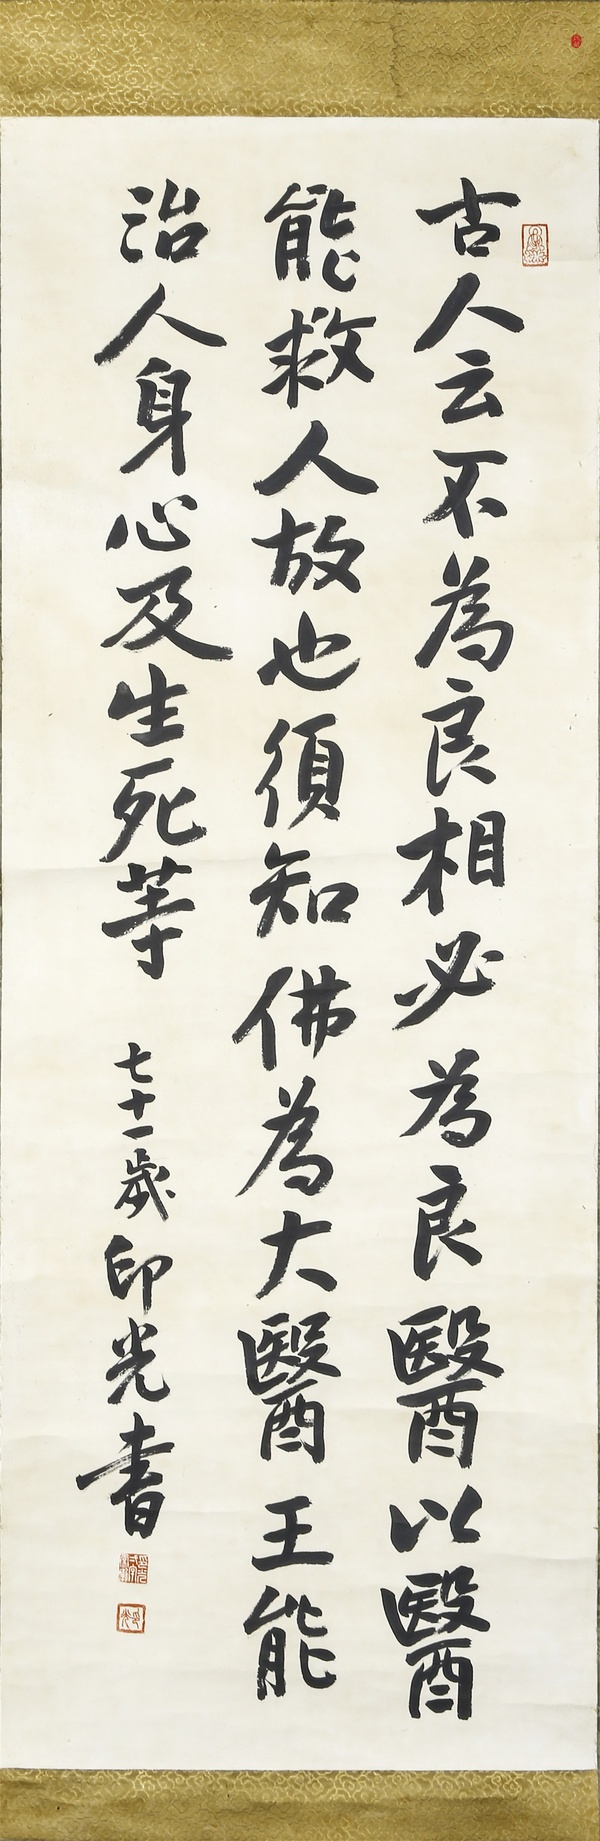 古人云不為良相必為良醫以醫
能救人故也須知佛為大醫王能
治人身心及生死等
七十一歲印光書